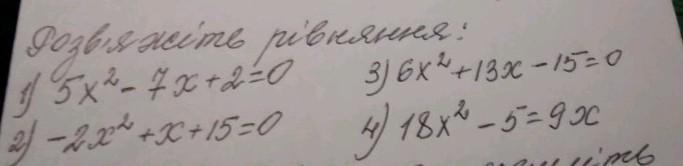 Розв'яжіть рівняння:
1) 5x² - 7x + 2 = 0
3) 6x² + 13x - 15 = 0
2) -2x² + x + 15 = 0
4) 18x² - 5 = 9x